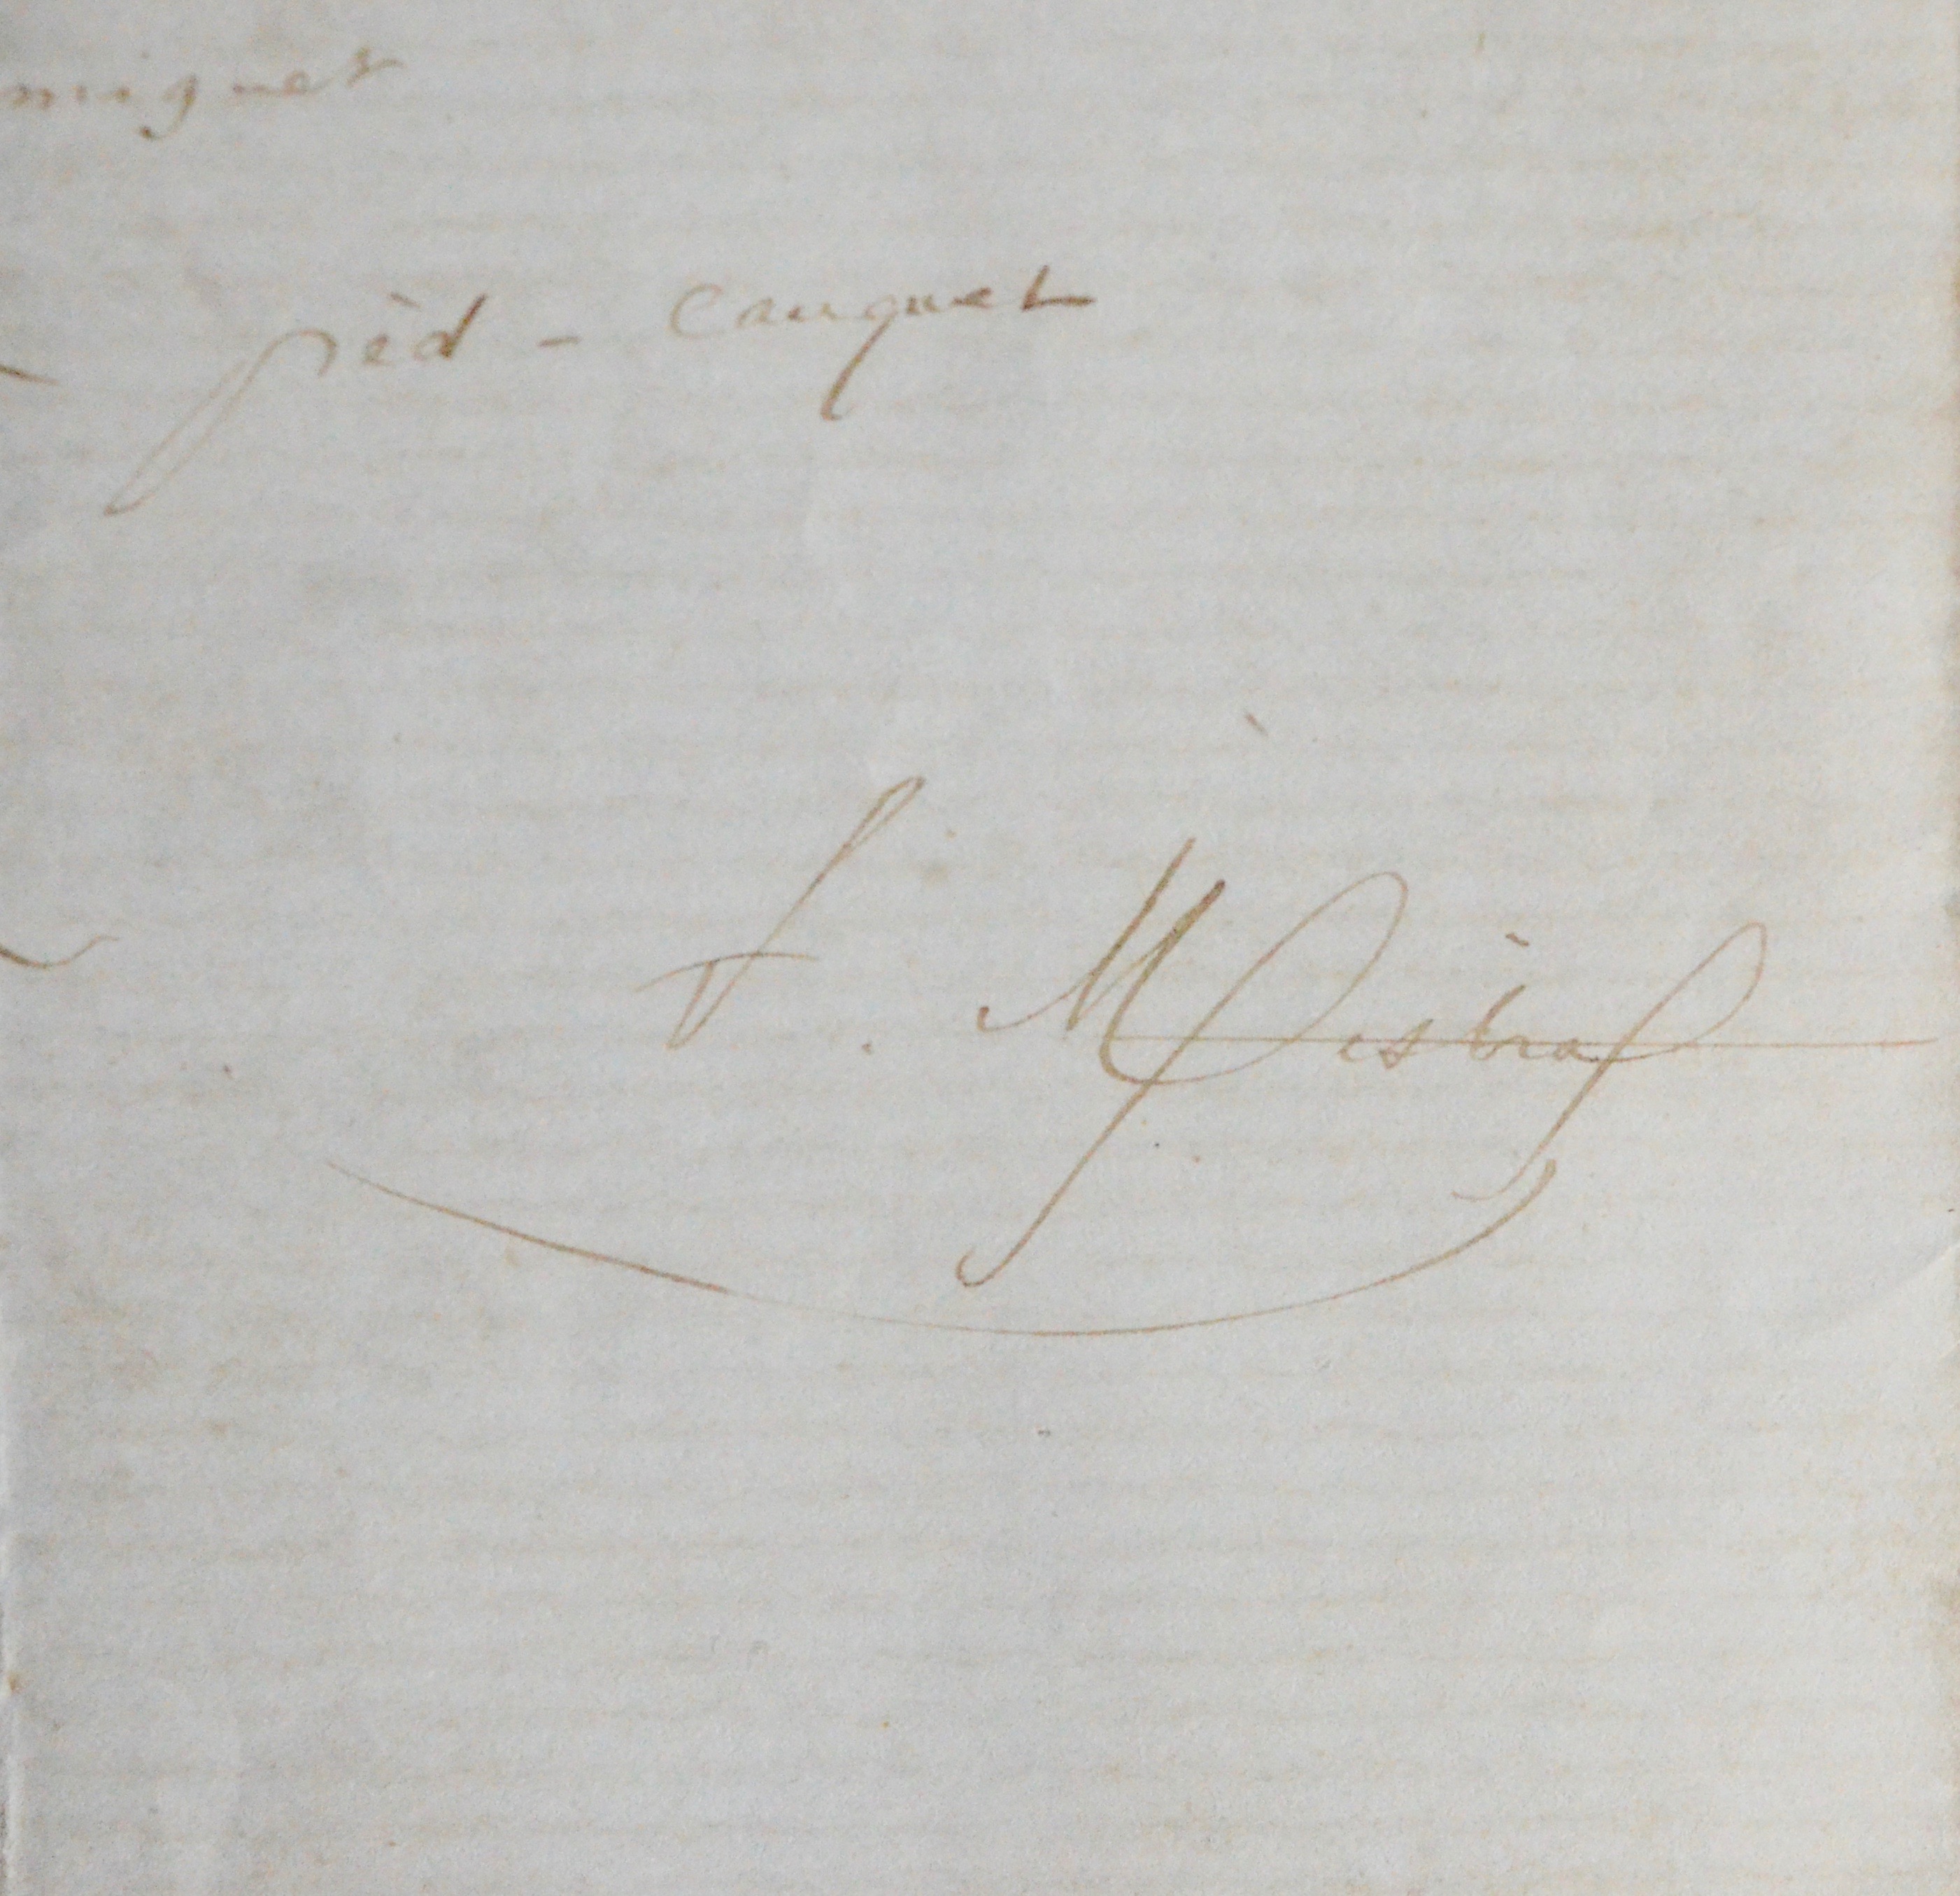 miquet
pèd - Cauquet
F. Mistral